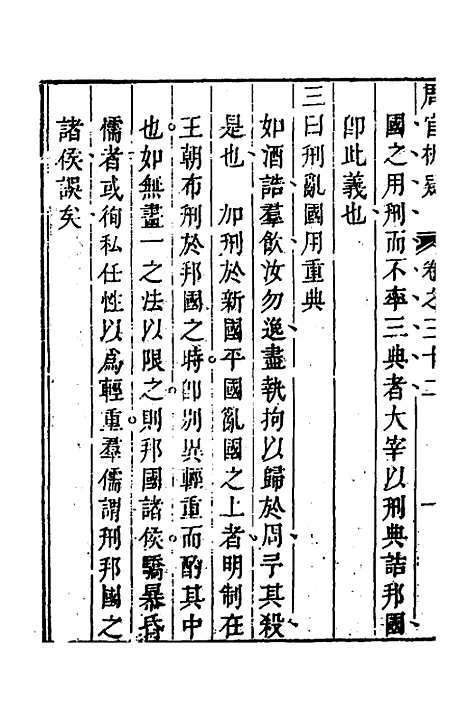 周官析疑 卷之三十二 一
國之用刑而不率三典者大宰以刑典詰邦國
卽此義也
三曰刑亂國用重典
如酒誥羣飲汝勿逸盡執拘以歸於周予其殺
是也 加刑於新國平國亂國之上者明制在
王朝布刑於邦國之時卽別異輕重而酌其中
也如無畫一之法以限之則邦國諸侯驕暴昏
儒者或徇私任性以爲輕重羣儒謂刑邦國之
諸侯誤矣